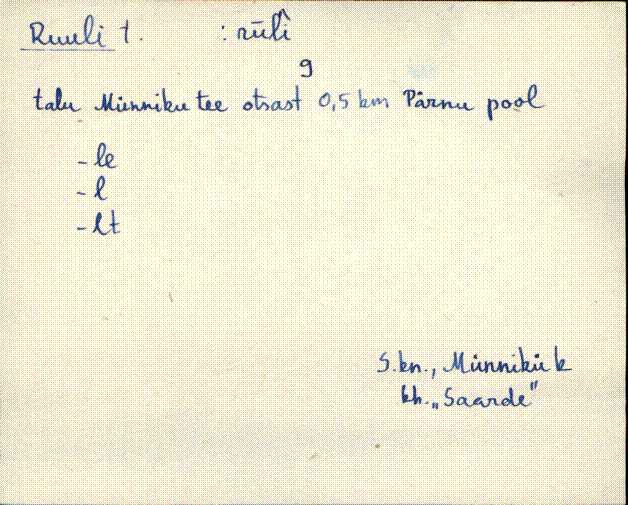 Ruuli t. : rūlì
g
talu Münniku tee otsast 0,5 km Pärnu pool
- le
- l
- lt
S.kn., Münnikü k
kh. „Saarde"